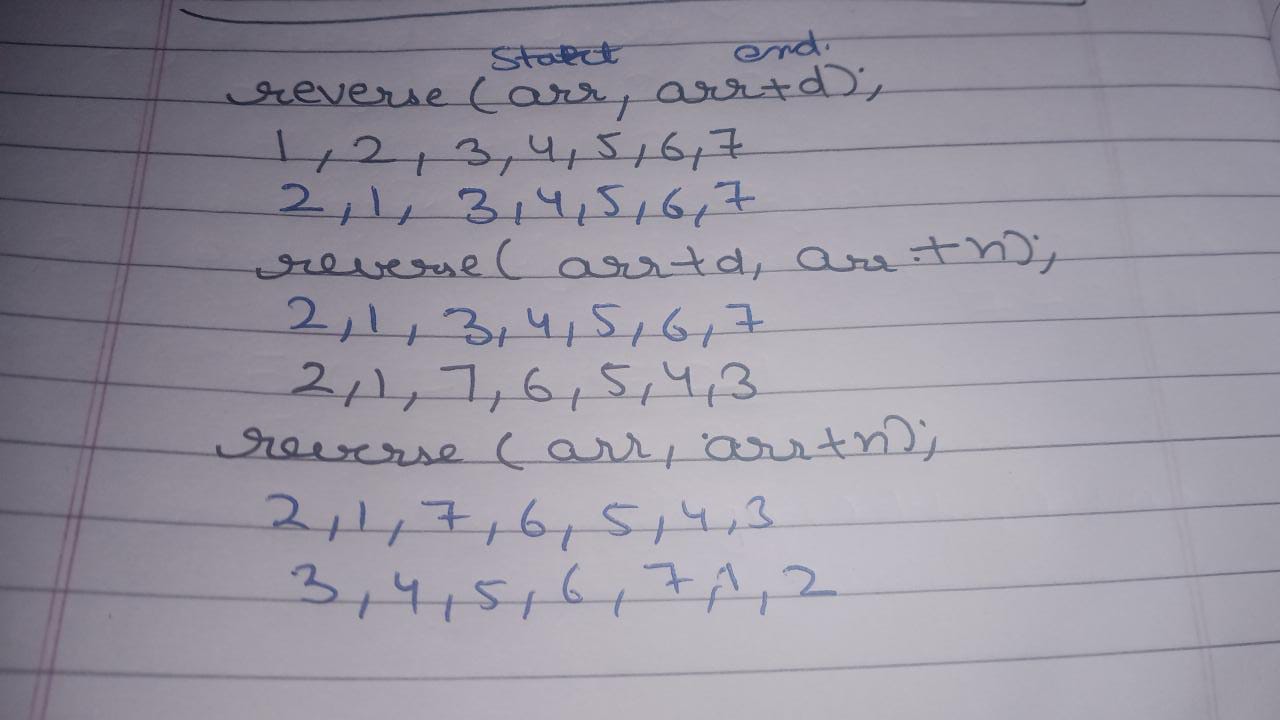 start end.
reverse (arr, arr+d);
1, 2, 3, 4, 5, 6, 7
2, 1, 3, 4, 5, 6, 7
reverse( arr+d, arr+n);
2, 1, 3, 4, 5, 6, 7
2, 1, 7, 6, 5, 4, 3
reverse (arr, arr+n);
2, 1, 7, 6, 5, 4, 3
3, 4, 5, 6, 7, 1, 2